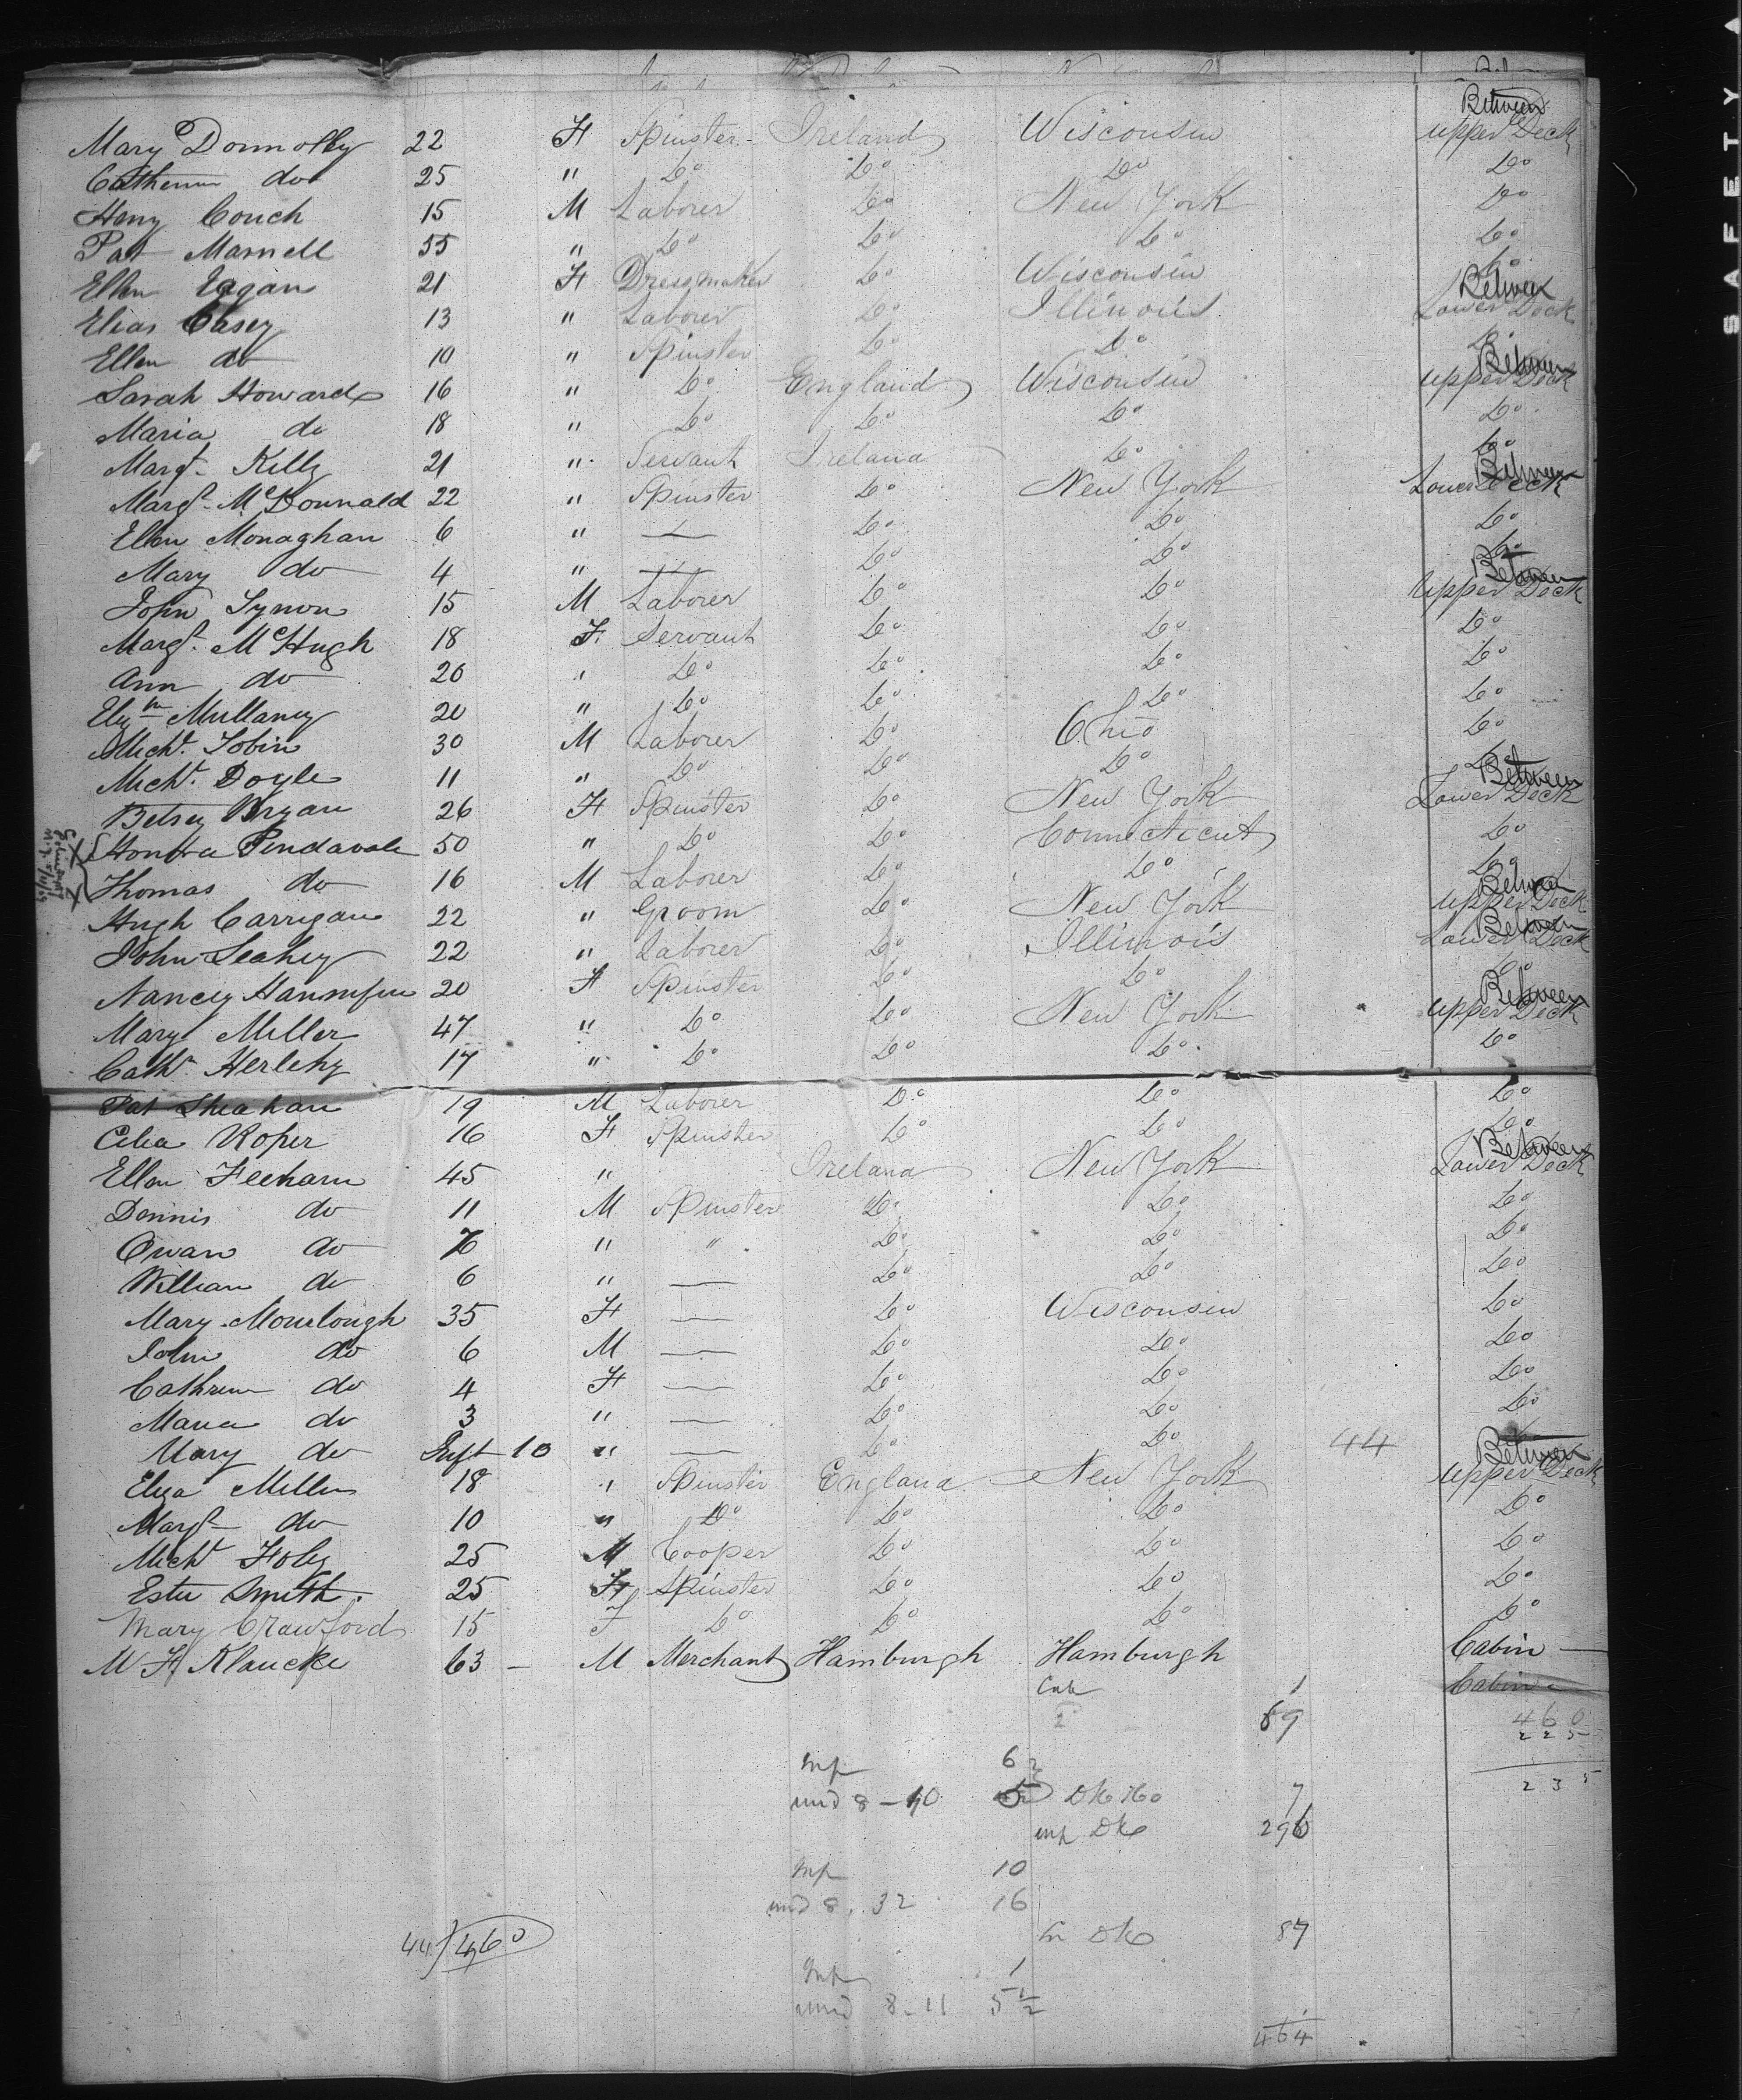 Between
Mary Donnolly 22 F Spinster Ireland Wisconsin Upper Deck
Catherin do 25 " Do Do Do Do
Heny Couch 15 M Laborer Do New York Do
Pat Marnell 55 " Do Do Do Do
Ellen Eagan 21 F Dressmaker Do Wisconsin Do
Between
Elias Casey 13 " Laborer Do Illinois Lower Deck
Ellen do 10 " Spinster Do Do Do
Between
Sarah Howard 16 " Do England Wisconsin Upper Deck
Maria do 18 " Do Do Do Do
Margt Kelly 21 " Servant Ireland Do Do
Between
Margt McDonnald 22 " Spinster Do New York Lower Deck
Ellen Monaghan 6 " — Do Do Do
Mary do 4 " — Do Do Do
Between
John Tynon 15 M Laborer Do Do Upper Deck
Margt McHugh 18 F Servant Do Do Do
Ann do 20 " Do Do Do Do
Mullaney 20 " Do Do Do Do
Michl Tobin 30 M Laborer Do Ohio Do
Michl Doyle 11 " Do Do Do Do
Between
Betsey Bryan 26 F Spinster Do New York Lower Deck
Pendavale 50 " Do Do Connecticut Do
Thomas do 16 M Laborer Do Do Do
Between
Hugh Carrigan 22 " Groom Do New York Upper Deck
Between
John Leahey 22 " Laborer Do Illinois Lower Deck
Nancy 20 F Spinster Do Do Do
Between
Mary Miller 47 " Do Do New York Upper Deck
Cathn Herlehy 17 " Do Do Do Do
Pat Sheahan 19 M Laborer Do Do Do
Celia Roper 16 F Spinster Do Do Do
Between
Ellen Feeham 45 " Ireland New York Lower Deck
Dennis do 11 M Spinster Do Do Do
Owan do " " Do Do Do
William do 6 " — Do Do Do
Mary Mourlough 35 F — Do Wisconsin Do
John do 6 M — Do Do Do
Cathren do 4 F — Do Do Do
Maria do 3 " — Do Do Do
Mary do 10 " — Do Do 44
Between
Eliza Miller 18 " Spinster England New York Upper Deck
Margt do 10 " Do Do Do Do
Michl Foley 25 M Cooper Do Do Do
Ester Smith 25 F Spinster Do Do Do
Mary Crawford 15 F Do Do Do Do
M H Klaucke 63 — M Merchant Hamburgh Hamburgh Cabin —
Cab 1 Cabin
2 89 460
225
Inf 6
235
und 8 — 10 5 Dk Ho 7
up Dk 296
Inf 10
und 8. 32 16
Lr Dk 87
44 / 460
Inf 1
und 8 - 11 5 1/2
464